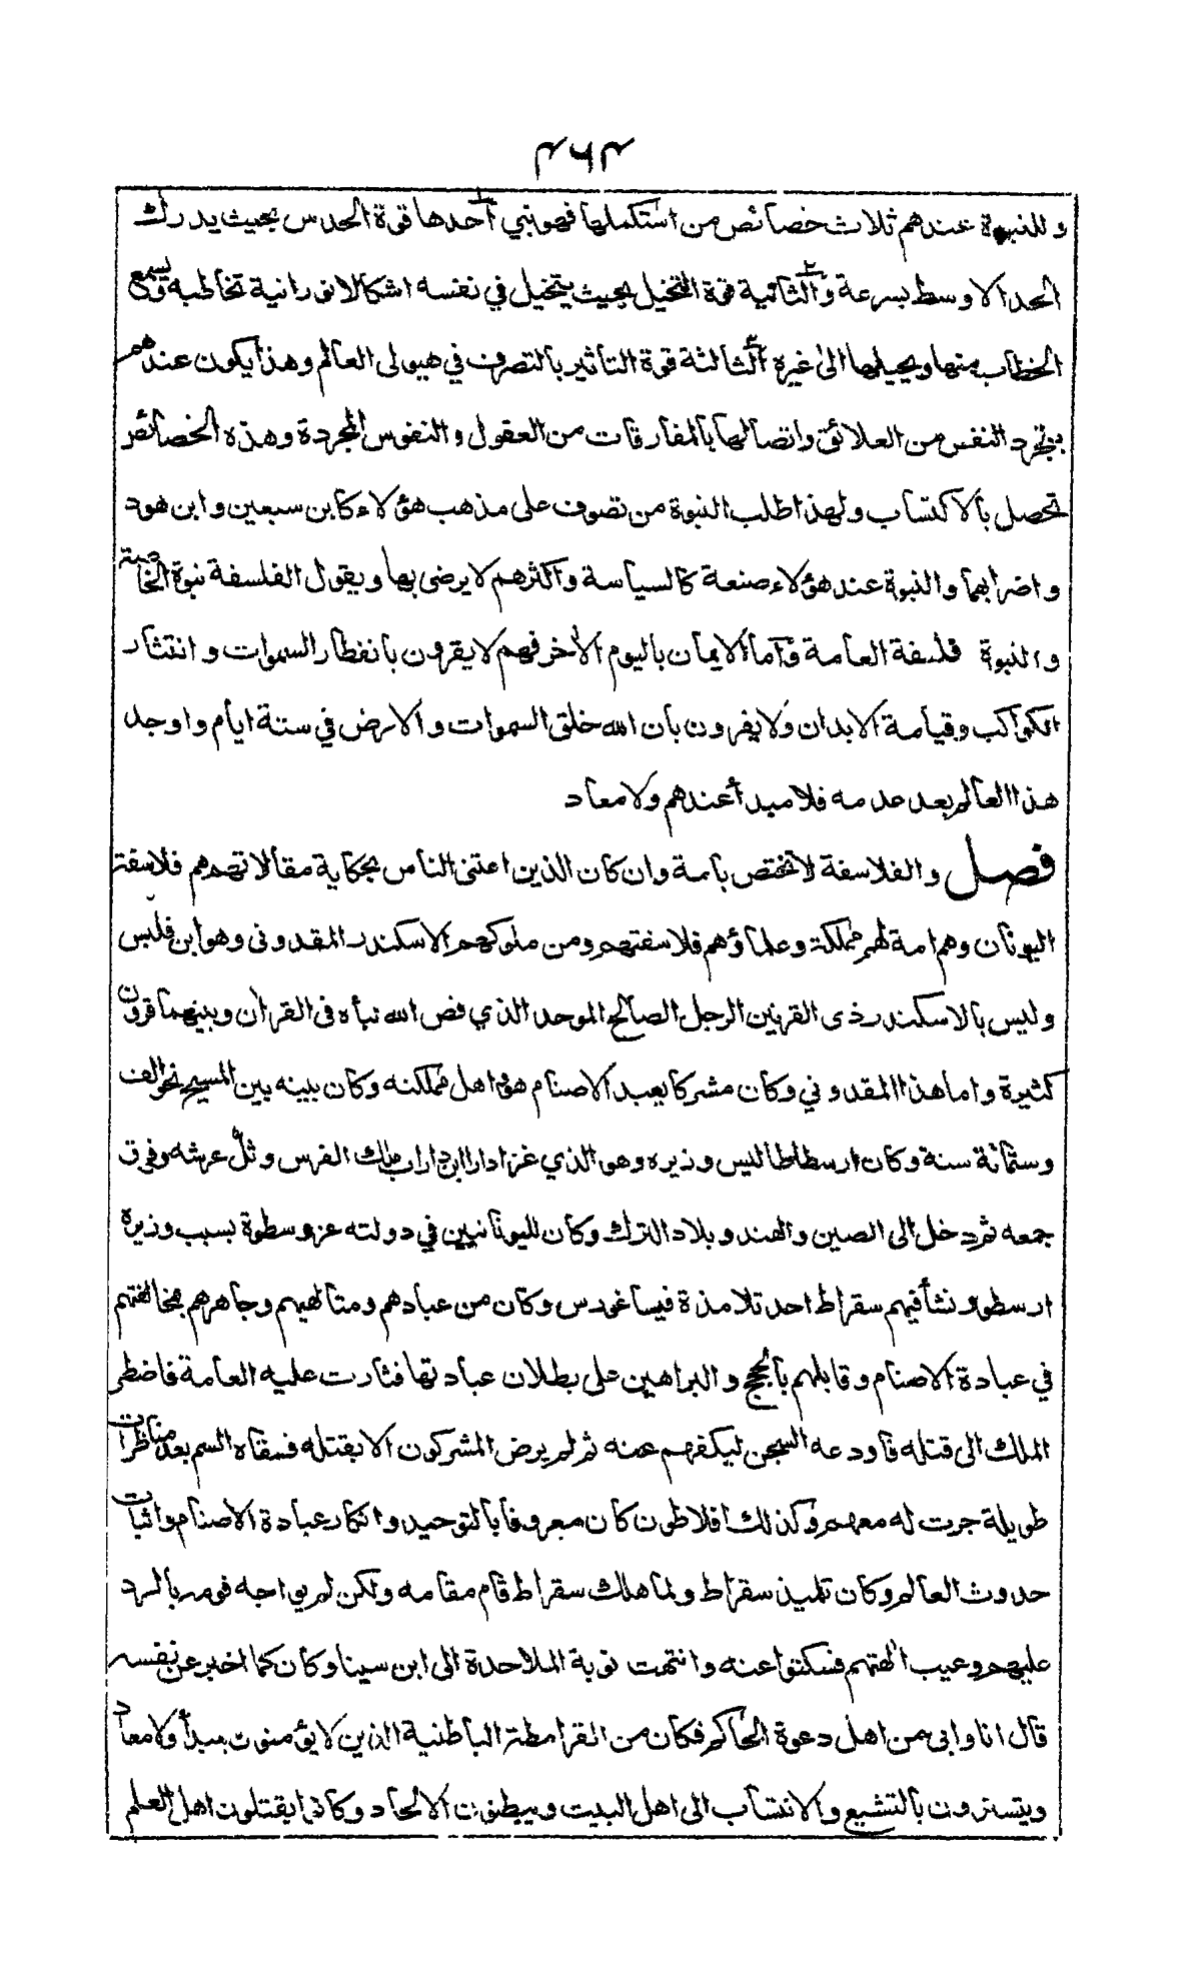 ٣٦٣
وللنبوة عندهم ثلاث خصائص من استكملها فهو نبي ١ أحدها قوة الحدس بحيث يدرك
الحد الاوسط بسرعة ٢ والثانية قوة التخيل بحيث يتخيل في نفسه اشكالا نورانية تخاطبه ويسمع
الخطاب منها ويحيلها الى غيره ٣ الثالثة قوة التاثير بالتصرف في هيولى العالم وهذا يكون عندهم
بتجرد النفس من العلائق واتصالها بالمفارقات من العقول والنفوس المجردة وهذه الخصائص
تحصل بالاكتساب ولهذا طلب النبوة من تصوف على مذهب هؤلاء كابن سبعين وابن هود
واضرابهما والنبوة عند هؤلاء صنعة كالسياسة واكثرهم لا يرضى بها ويقول الفلسفة نبوة الخاصة
والنبوة فلسفة العامة وأما الايمان باليوم الآخر فهم لا يقرون بانفطار السموات وانتثار
الكواكب وقيامة الابدان ولا يقرون بأن الله خلق السموات والارض في ستة ايام واوجد
هذا العالم بعد عدمه فلا مبدأ عندهم ولا معاد
فصل والفلاسفة لا تختص بامة وان كان الذين اعتنى الناس بحكاية مقالاتهم هم فلاسفة
اليونان وهم امة لهم مملكة وعلماؤهم فلاسفتهم ومن ملوكهم الاسكندر المقدونى وهو ابن فلبس
وليس بالاسكندر ذى القرنين الرجل الصالح الموحد الذي قص الله نبأه فى القرآن وبينهما قرون
كثيرة واما هذا المقدوني وكان مشركا يعبد الاصنام هو واهل مملكته وكان بينه بين المسيح نحو الف
وستمائة سنة وكان ارسطاطاليس وزيره وهو الذي غزا دارا ابن داراب ملك الفرس وثل عرشه وفرق
جمعه ثم دخل الى الصين والهند وبلاد الترك وكان لليونانيين في دولته عز وسطوة بسبب وزيره
ارسطو ونشأ فيهم سقراط احد تلامذة فيساغورس وكان من عبادهم ومتألهيهم وجاهرهم بمخالفتهم
في عبادة الاصنام وقابلهم بالحجج والبراهين على بطلان عبادتها فثارت عليه العامة فاضطر
الملك الى قتله فأودعه السجن ليكفهم عنه ثم لم يرض المشركون الا بقتله فسقاه السم بعد مناظرات
طويلة جرت له معهم وكذلك افلاطون كان معروفا بالتوحيد وانكار عبادة الاصنام واثبات
حدوث العالم وكان تلميذ سقراط ولما هلك سقراط قام مقامه ولكن لم يواجه قومه بالرد
عليهم وعيب آلهتهم فسكتوا عنه وانتهت نوبة الملاحدة الى ابن سينا وكان كما اخبر عن نفسه
قال انا وابى من اهل دعوة الحاكم فكان من القرامطة الباطنية الذين لا يؤمنون بمبدأ ولا معاد
ويتسترون بالتشيع والانتساب الى اهل البيت ويبطنون الالحاد وكانوا يقتلون اهل العلم